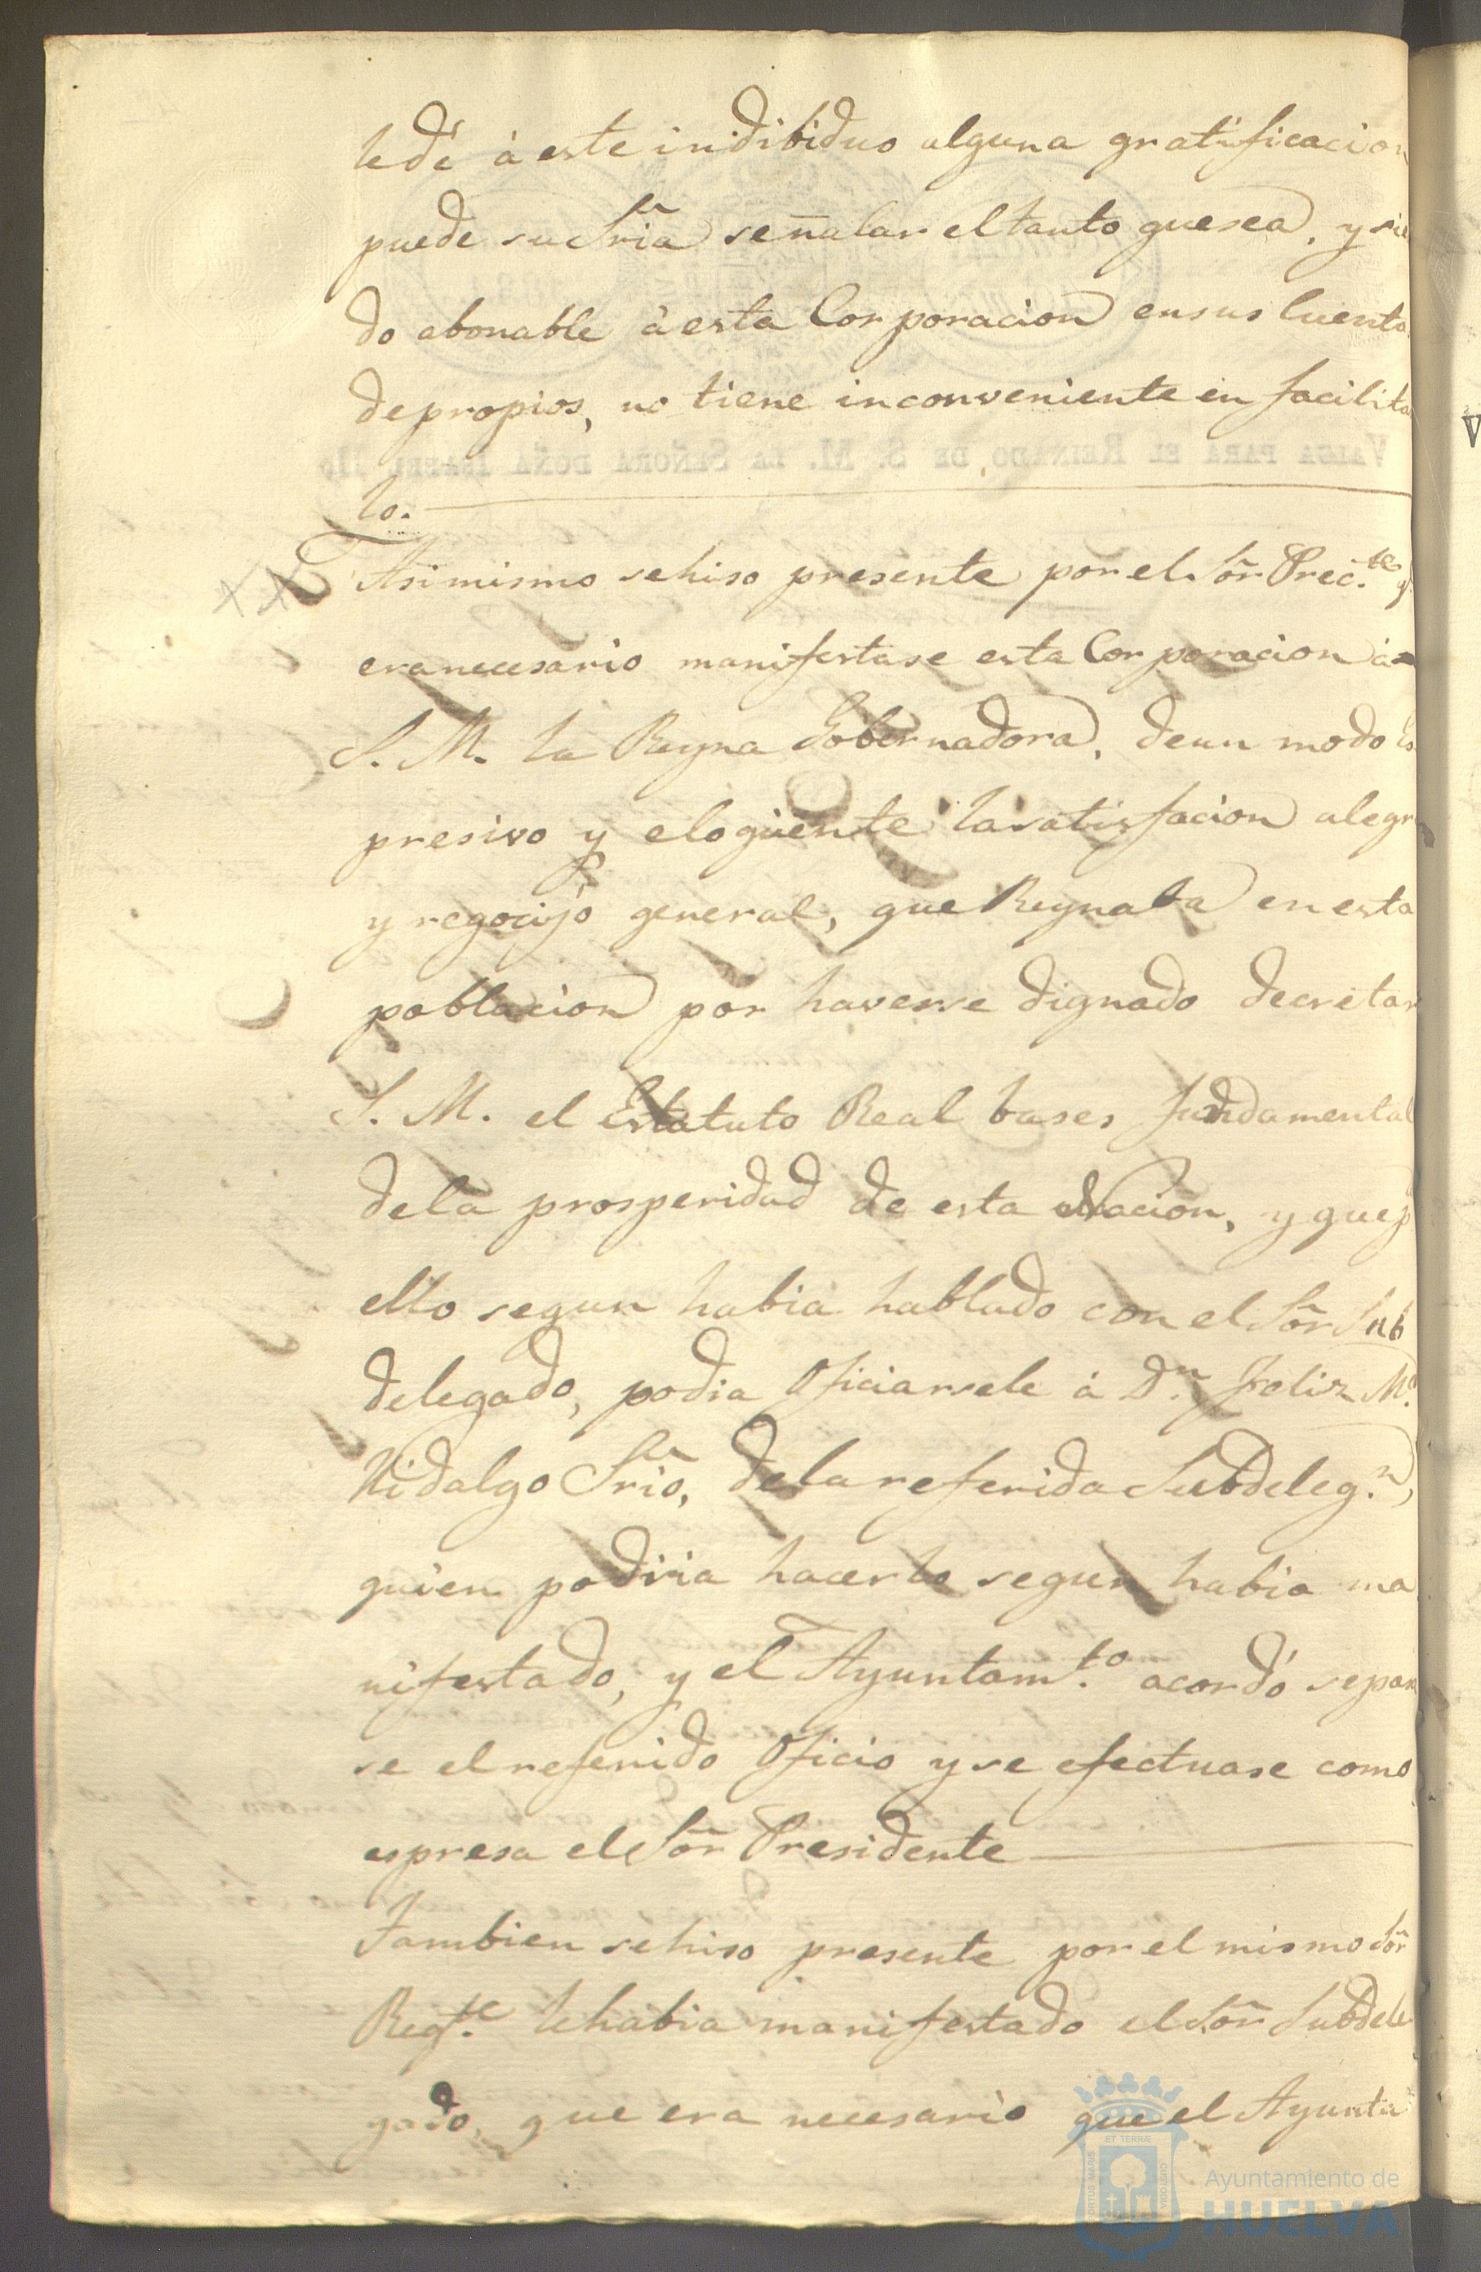 le dé à este indibiduo alguna gratificacion
puede su Sria señalar el tanto que sea, y sien
do abonable à esta Corporacion en sus Cuenta
de propios, no tiene inconveniente en facilita
lo.
Asimismo se hiso presente por el Sor̃
era necesario manifestase esta Corporacion á
S. M. la Reyna Gobernadora, de un modo Es
presivo y eloguente la satisfacion alegr
y regocijo general, que Reynaba en esta
poblacion por haverse dignado decretar
S. M. el Estatuto Real bases fundamental
de la prosperidad de esta Nacion, y que p
ello segun habia hablado con el Sor̃ Sub
delegado, podia Oficiarsele á Dn. Felix Ma.
Hidalgo Srio, de la referida Subdelegn.,
quien podiria hacerlo segun habia ma
nifestado, y el Ayuntamto. acordó se pasa
se el referido Oficio y se efectuase como
espresa el Sor̃ Presidente
Tambien se hiso presente por el mismo Sor̃
le habia manifestado el Sor̃ Subdele
gado, que era necesario que el Ayunta
VALGA PARA EL REINADO DE S. M. LA SEÑORA DOÑA ISABEL II
V
PORTUS MARIS
ET TERRÆ
CUSTODIA
Ayuntamiento de
HUELVA